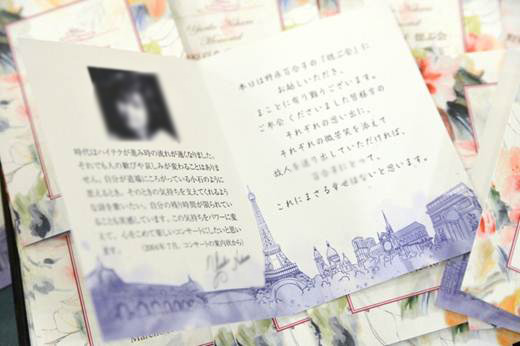 時代はハイテクが進み時の流れが速くなりました。
それでも人の歓びや哀しみが変わることはありま
せん。自分が直場にころがっている小石のように
思えるとき、そのときの気持ちを支えてくれるよう
な詩を歌いたい。自分の残り時間が限られてい
ることも実感しています。この気持ちをパワーに変
えて、心をこめて楽しいコンサートにしたいと思い
ます。
(2004年7月、コンサートの案内状から)
本日は野原百合子の「偲ぶ会」に
お越しいただき、
まことに有り難うございます。
ご来会くださいました皆様方の
それぞれの思い出に、
それぞれの微笑を添えて
故人を送り出していただければ、
これにまさる幸せはないと思います。
偲ぶ会
Memorial